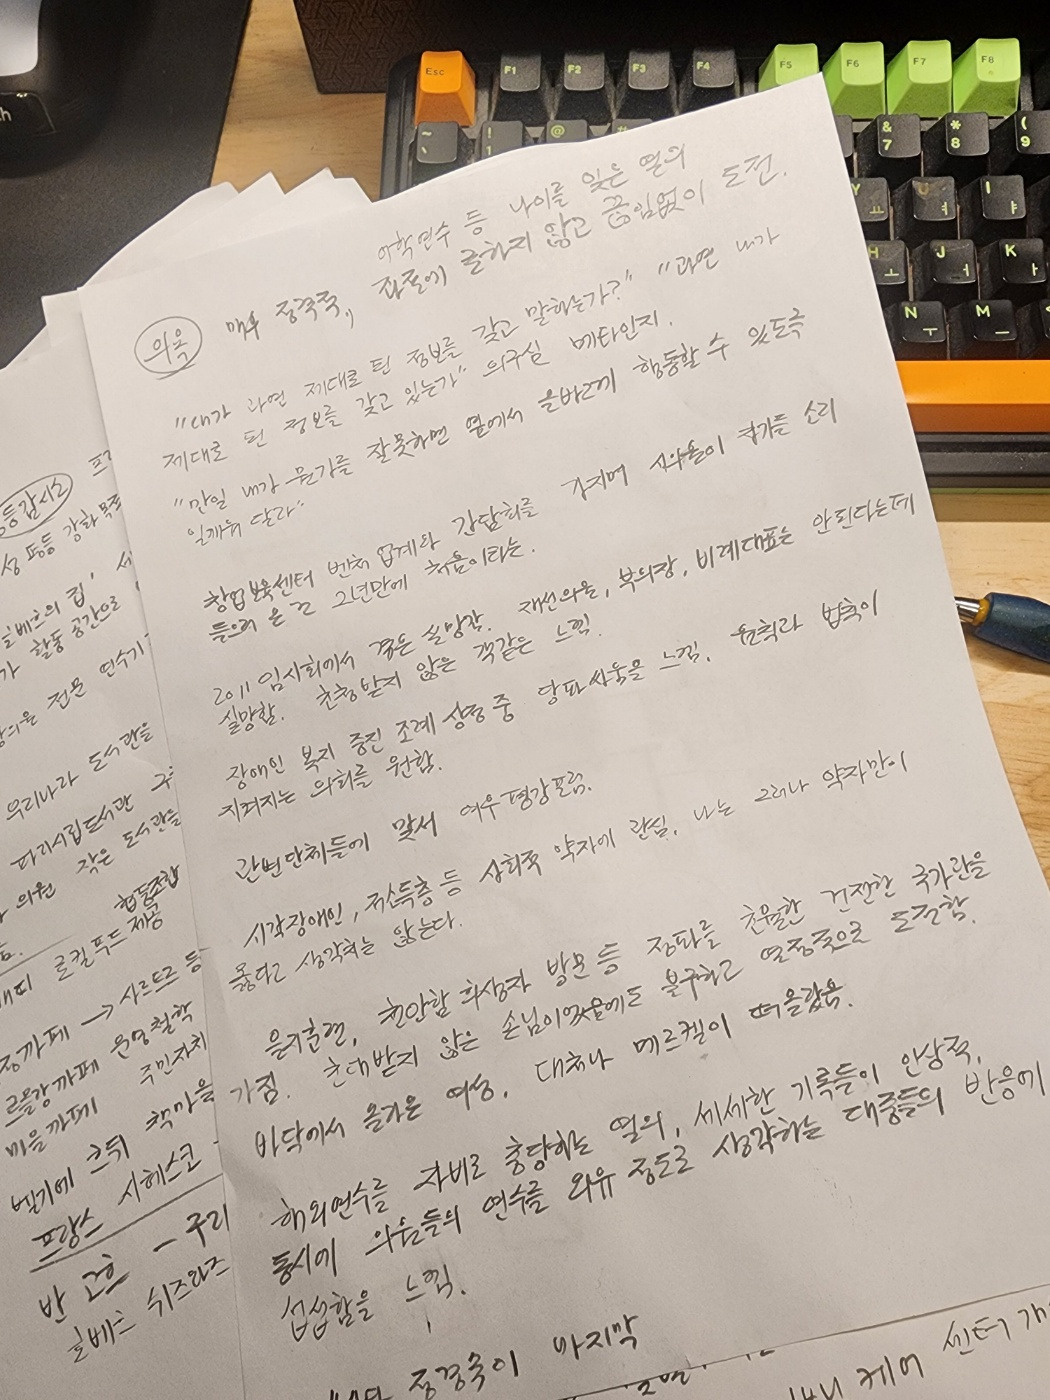 어학연수 등 나이를 잊은 열의
매우 정력적, 좌절에 굴하지 않고 끊임없이 도전.
의욕
"내가 과연 제대로 된 정보를 갖고 말하는가?" "과연 내가
제대로 된 정보를 갖고 있는가" 의구심 메타인지.
"만일 내가 뭔가를 잘못하면 옆에서 올바르게 행동할 수 있도록
일깨워 달라"
창업보육센터 벤처 업계와 간담회를 가지며 시의원이 자기들 소리
들으러 온 건 그년만에 처음이라는.
2011 임시회에서 겪은 실망감. 재선의원, 부의장, 비례대표는 안된다는데
실망함. 초청받지 않은 객같은 느낌.
장애인 복지 증진 조례 상정 중 당파싸움을 느낌. 원칙과 법축이
지켜지는 의회를 원함.
관변단체들에 맞서 여우평강포럼.
시각장애인, 저소득층 등 사회적 약자에 관심. 나는 그러나 약자만이
옳다고 생각하는 않는다.
을지훈련, 천안함 희생자 방문 등 정파를 초월한 건전한 국가관을
가짐. 초대받지 않은 손님이었음에도 불구하고 열정적으로 도전함.
바닥에서 올라온 여성. 대처나 메르켈이 떠올랐음.
해외연수를 자비로 충당하는 열의, 세세한 기록들이 인상적.
동시에 의원들의 연수를 외유 정도로 생각하는 대중들의 반응에
섭섭함을 느낌.
정경숙이 마지막
케어 센터 개
등감시로
성 평등 강화 목적
의 집' 세
가 활동 공간으로
전문 연수기
우리나라 도서관을
파리시립도서관 구
의원 작은 도서관을
협동조합
로컬푸드 제공
정까페 → 사르트르 등
르몰랑까페 운영철학
마을까페 주민자치
벨기에 르뒤 책마을
프랑스 시헤스코
반 고흐 - 구리
알베르 쉬즈와즈
Esc F1 F2 F3 F4 F5 F6 F7 F8
~ ! @ & 7 * 8 ( 9
Y ㅛ U ㅕ I ㅑ
H ㅗ J ㅓ K ㅏ
N ㅜ M ㅡ